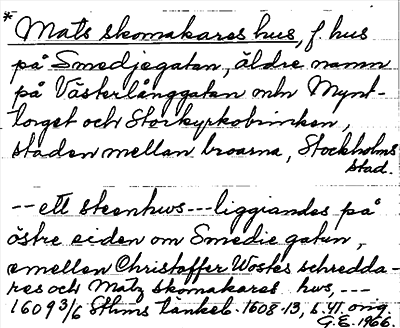 * Mats skomakares hus, f. hus
på Smedjegatan, äldre namn
på Västerlånggatan mln Mynt-
torget och Storkyrkobrinken,
staden mellan broarna, Stockholms
stad.
-- ett steenhws --- liggiandes på
östre siden om Smedie gatun,
emellan Christoffer Wostes schredda-
res och Matz skomakares hws, ---
1609 3/6 Sthms tänkeb. 1608-13, s. 41 orig.
G.E. 1966.